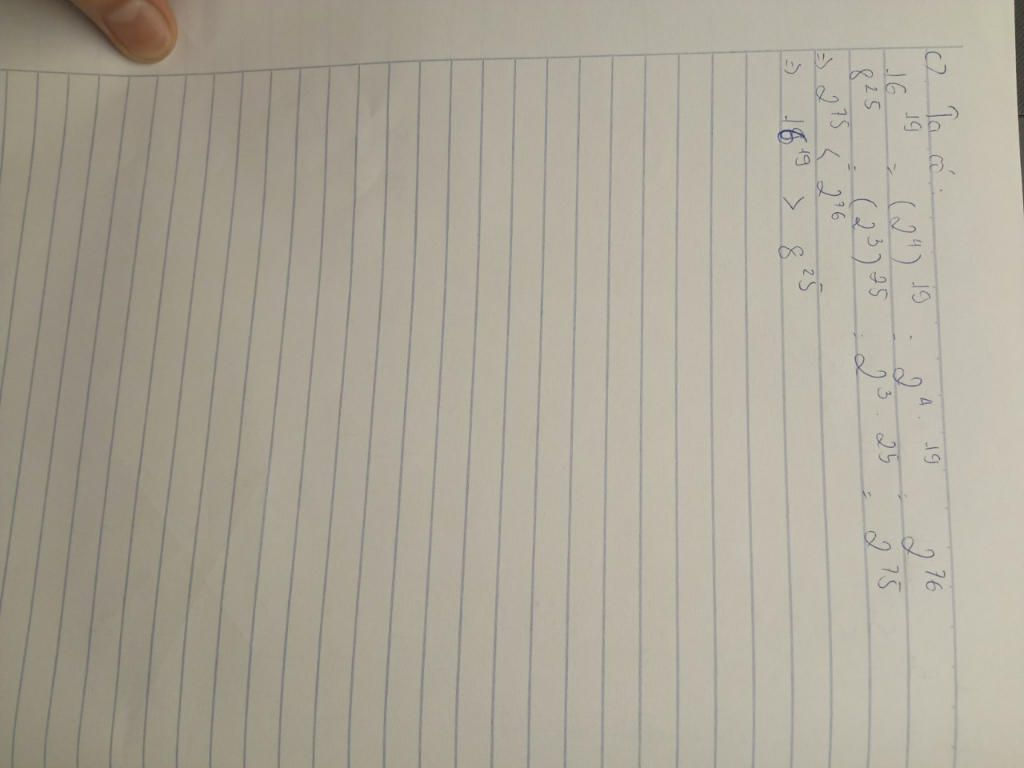 c) Ta có:
16¹⁹ = (2⁴)¹⁹ = 2⁴·¹⁹ = 2⁷⁶
8²⁵ = (2³)²⁵ = 2³·²⁵ = 2⁷⁵
=> 2⁷⁵ < 2⁷⁶
=> 16¹⁹ > 8²⁵